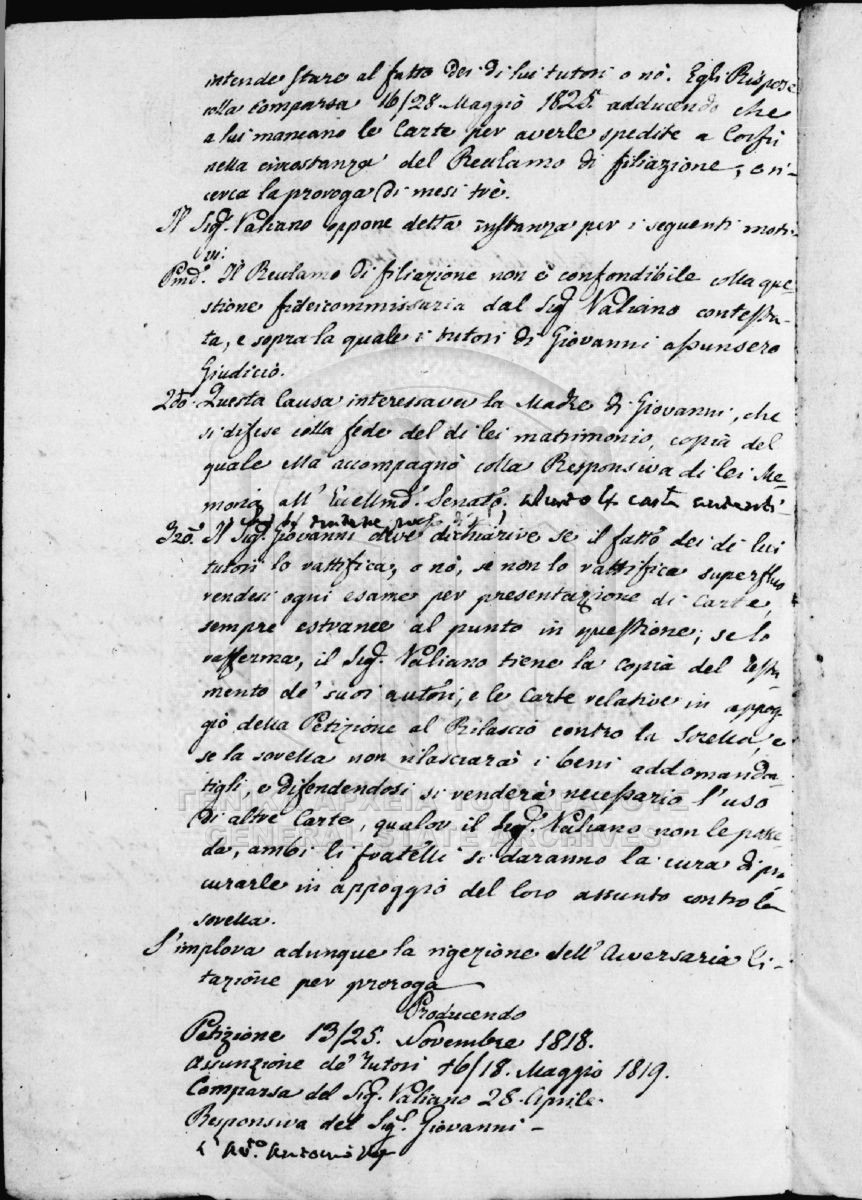 intende stare al fatto dei di lui tutori o nò. Egli Rispose
colla Comparsa 16/28 Maggiò 1825. adducendo che
a lui mancano le Carte per averle spedite a Corfù
nella circostanza del Reclamo di filiazione, on
cerca la proroga di mesi trè.
Il Sig.r Valiano oppone detta instanza per i seguenti moti-
vi.
Pmo. Il Reclamo di filiazione non è confondibile colla que-
stione fideicommissaria dal Sig.r Valiano contesta-
ta, e sopra la quale i tutori di Giovanni assunsero
Giudiciò.
2do. Questa Causa interessava la Madre di Giovanni, che
si difese colla fede del di lei matrimonio, copia del
quale ella accompagnò colla Responsiva di lei Me-
moria all' Eccellmo. Senato.
3zo. Il Sig.r Giovanni deve dichiarire se il fatto dei di lui
tutori lo rattifica, o nò, se non lo rattifica superfluo
rendesi ogni esame per presentazione di Carte,
sempre estranee al punto in questione; se lo
rafferma, il Sig.r Valiano tiene la copia del testa-
mento de' suoi autori, e le Carte relative in appog-
giò della Petizione al Rilasciò contro la Sorella, e
se la sorella non rilasciarà i beni addomanda-
tigli, e difendendosi si renderà necessario l'uso
ΓΕΝΙΚΑ ΑΡΧΕΙΑ ΤΟΥ ΚΡΑΤΟΥΣ
di altre Carte, qualor il Sig.r Valiano non le posse-
GENERAL STATE ARCHIVES
da, ambi li fratelli si daranno la cura di pro
curarle in appoggiò del loro assunto contro la
sorella.
S'implora adunque la rigezione dell' Avversaria Ci-
tazione per proroga
Producendo
Petizione 13/25. Novembre 1818.
Assunzione de' Tutori 16/18. Maggiò 1819.
Comparsa del Sig.r Valiano 28. Aprile.
Responsiva del Sig.r Giovanni -
Antonio